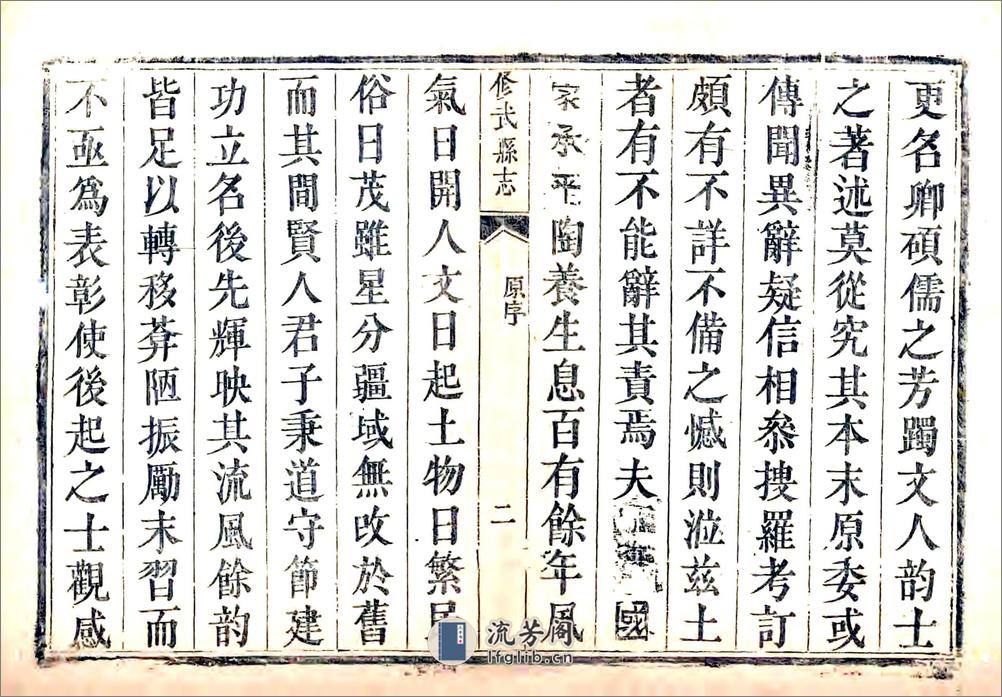 更名卿碩儒之芳躅文人韵士
之著述莫從究其本末原委或
傳聞異辭疑信相叅捜羅考訂
頗有不詳不備之憾則涖兹土
者有不能辭其責焉夫國
家承平陶養生息百有餘年風
修武縣志
原序
二
氣日開人文日起土物日繁民
俗日茂雖星分疆域無改於舊
而其間賢人君子秉道守節建
功立名後先輝映其流風餘韵
皆足以轉移莾陋振勵末習而
不亟爲表彰使後起之士觀感
流芳阁
lfglib.cn